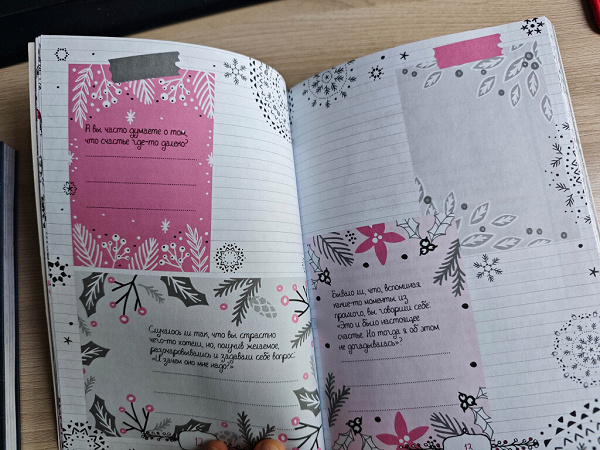 А вы часто думаете о том,
что счастье где-то далеко?
Случалось ли так, что вы страстно
чего-то хотели, но, получив желаемое,
разочаровывались и задавали себе вопрос:
«И зачем оно мне надо?»
Бывало ли, что, вспоминая
какие-то моменты из
прошлого, вы говорили себе:
«Это и было настоящее
счастье. Но тогда я об этом
не догадывалась»?
13